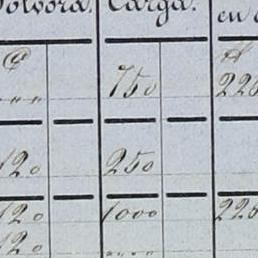 Polvora. Carga. en
@
" " 750 226
120 250
120 1000 226
120 " " " "